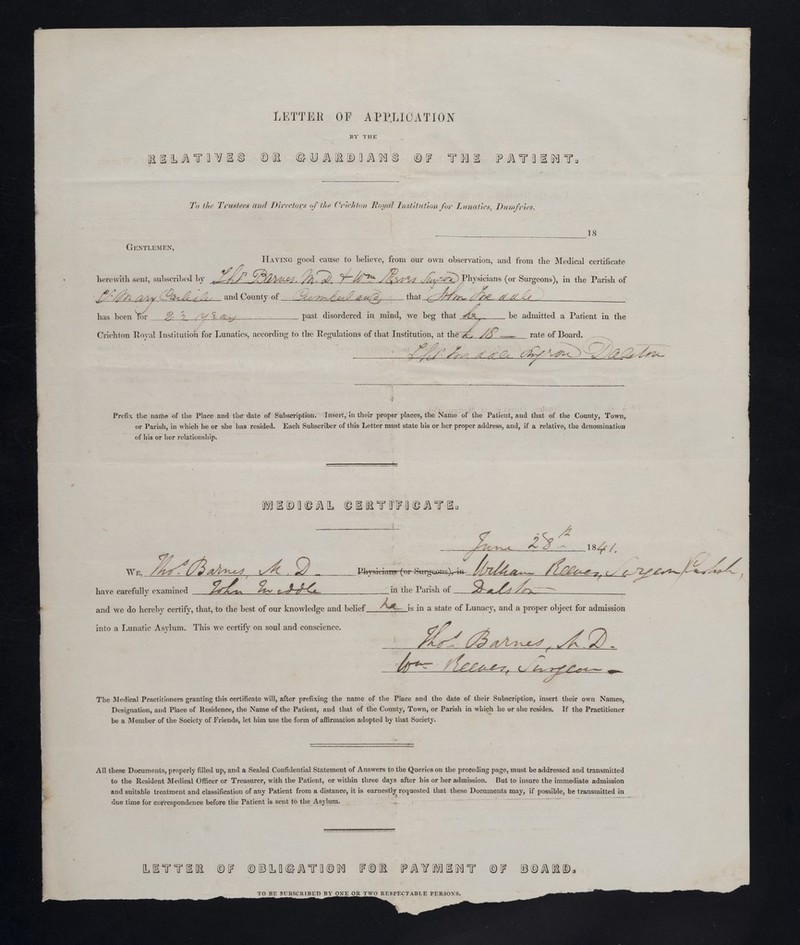 LETTER OF APPLICATION
BY THE
RELATIVES OR GUARDIANS OF THE PATIENT.
To the Trustees and Directors of the Crichton Royal Institution for Lunatics, Dumfries.
18
GENTLEMEN,
HAVING good cause to believe, from our own observation, and from the Medical certificate
herewith sent, subscribed by Thos Barnes M.D. & Wm Reeves Surgeon Physicians (or Surgeons), in the Parish of
St Mary Carlisle and County of Cumberland that John
has been for 2½ years past disordered in mind, we beg that he be admitted a Patient in the
Crichton Royal Institution for Lunatics, according to the Regulations of that Institution, at the £ 18 rate of Board.
Surgeon Dalston
Prefix the name of the Place and the date of Subscription. Insert, in their proper places, the Name of the Patient, and that of the County, Town,
or Parish, in which he or she has resided. Each Subscriber of this Letter must state his or her proper address, and, if a relative, the denomination
of his or her relationship.
MEDICAL CERTIFICATE.
June 28th 1841.
WE, Thos Barnes, M.D. Physicians (or Surgeons), in William Reeves, Surgeon Carlisle,
have carefully examined John in the Parish of Dalston
and we do hereby certify, that, to the best of our knowledge and belief he is in a state of Lunacy, and a proper object for admission
into a Lunatic Asylum. This we certify on soul and conscience.
Thos Barnes, M.D.
Wm Reeves, Surgeon
The Medical Practitioners granting this certificate will, after prefixing the name of the Place and the date of their Subscription, insert their own Names,
Designation, and Place of Residence, the Name of the Patient, and that of the County, Town, or Parish in which he or she resides. If the Practitioner
be a Member of the Society of Friends, let him use the form of affirmation adopted by that Society.
All these Documents, properly filled up, and a Sealed Confidential Statement of Answers to the Queries on the preceding page, must be addressed and transmitted
to the Resident Medical Officer or Treasurer, with the Patient, or within three days after his or her admission. But to insure the immediate admission
and suitable treatment and classification of any Patient from a distance, it is earnestly requested that these Documents may, if possible, be transmitted in
due time for correspondence before the Patient is sent to the Asylum.
LETTER OF OBLIGATION FOR PAYMENT OF BOARD.
TO BE SUBSCRIBED BY ONE OR TWO RESPECTABLE PERSONS.